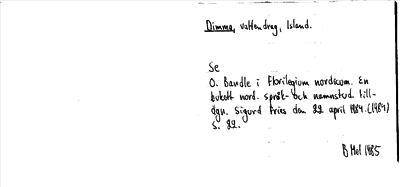 Dimma, vattendrag, Island.
Se
O. Bandle i Florilegium nordicum. En
bukett nord. språk- och namnstud. till-
ägn. Sigurd Fries den 22 april 1984. (1984)
S. 22.
B Mel 1985